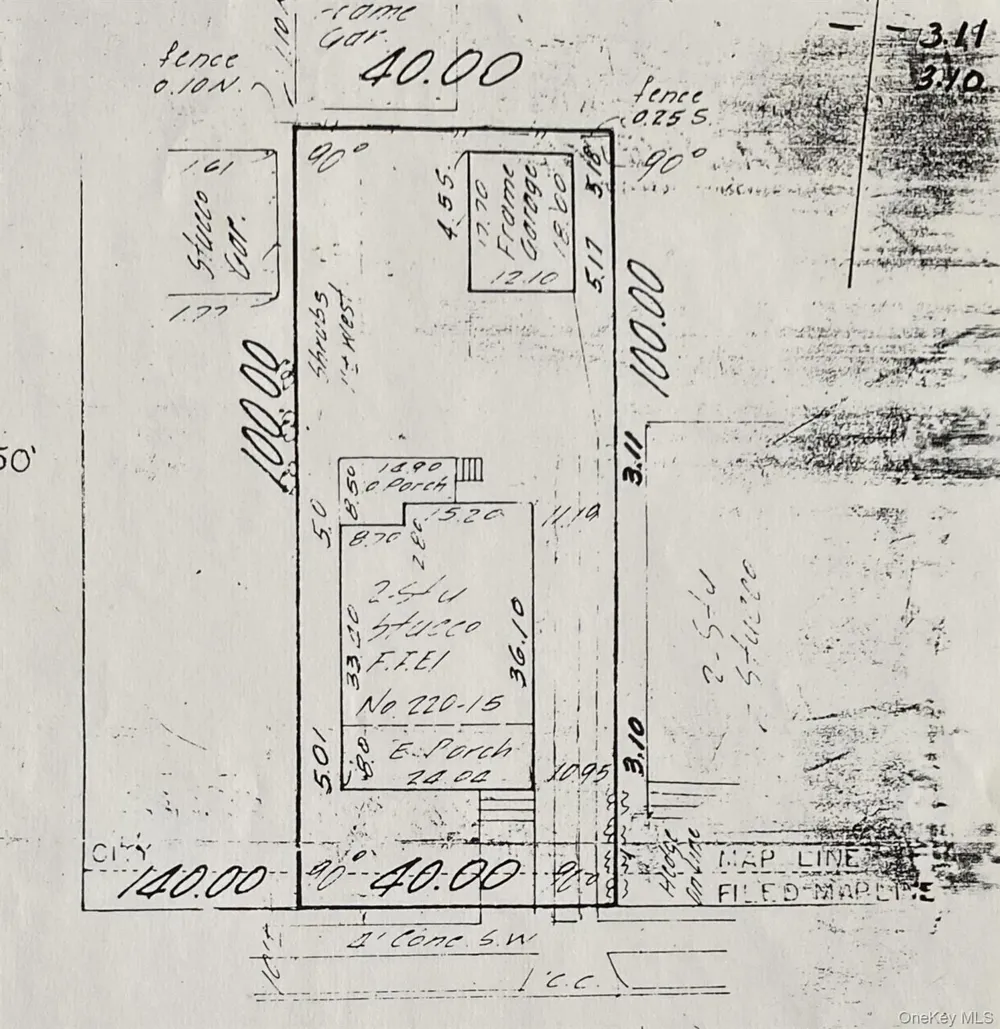 Frame
Gar.
3.11
3.10
fence
0.10 N.
40.00
fence
0.25 S.
90°
90°
1.61
Stucco
Gar.
1.77
4.55
17.70
Frame
Garage
18.60
12.10
5.18
5.17
100.00
100.00
Shrubs
1'± West
50'
14.90
o Porch
8.50
5.0
8.70
15.20
2.80
11.19
3.11
2-Sty
Stucco
F.I.El
No 220-15
36.10
2-Sty
Stucco
5.01
8.0
E. Porch
24.04
10.95
3.10
CITY
MAP LINE
140.00
90°
40.00
90°
Hedge
on line
FILED MAP LINE
4' Conc. S.W
C.C.
OneKey MLS